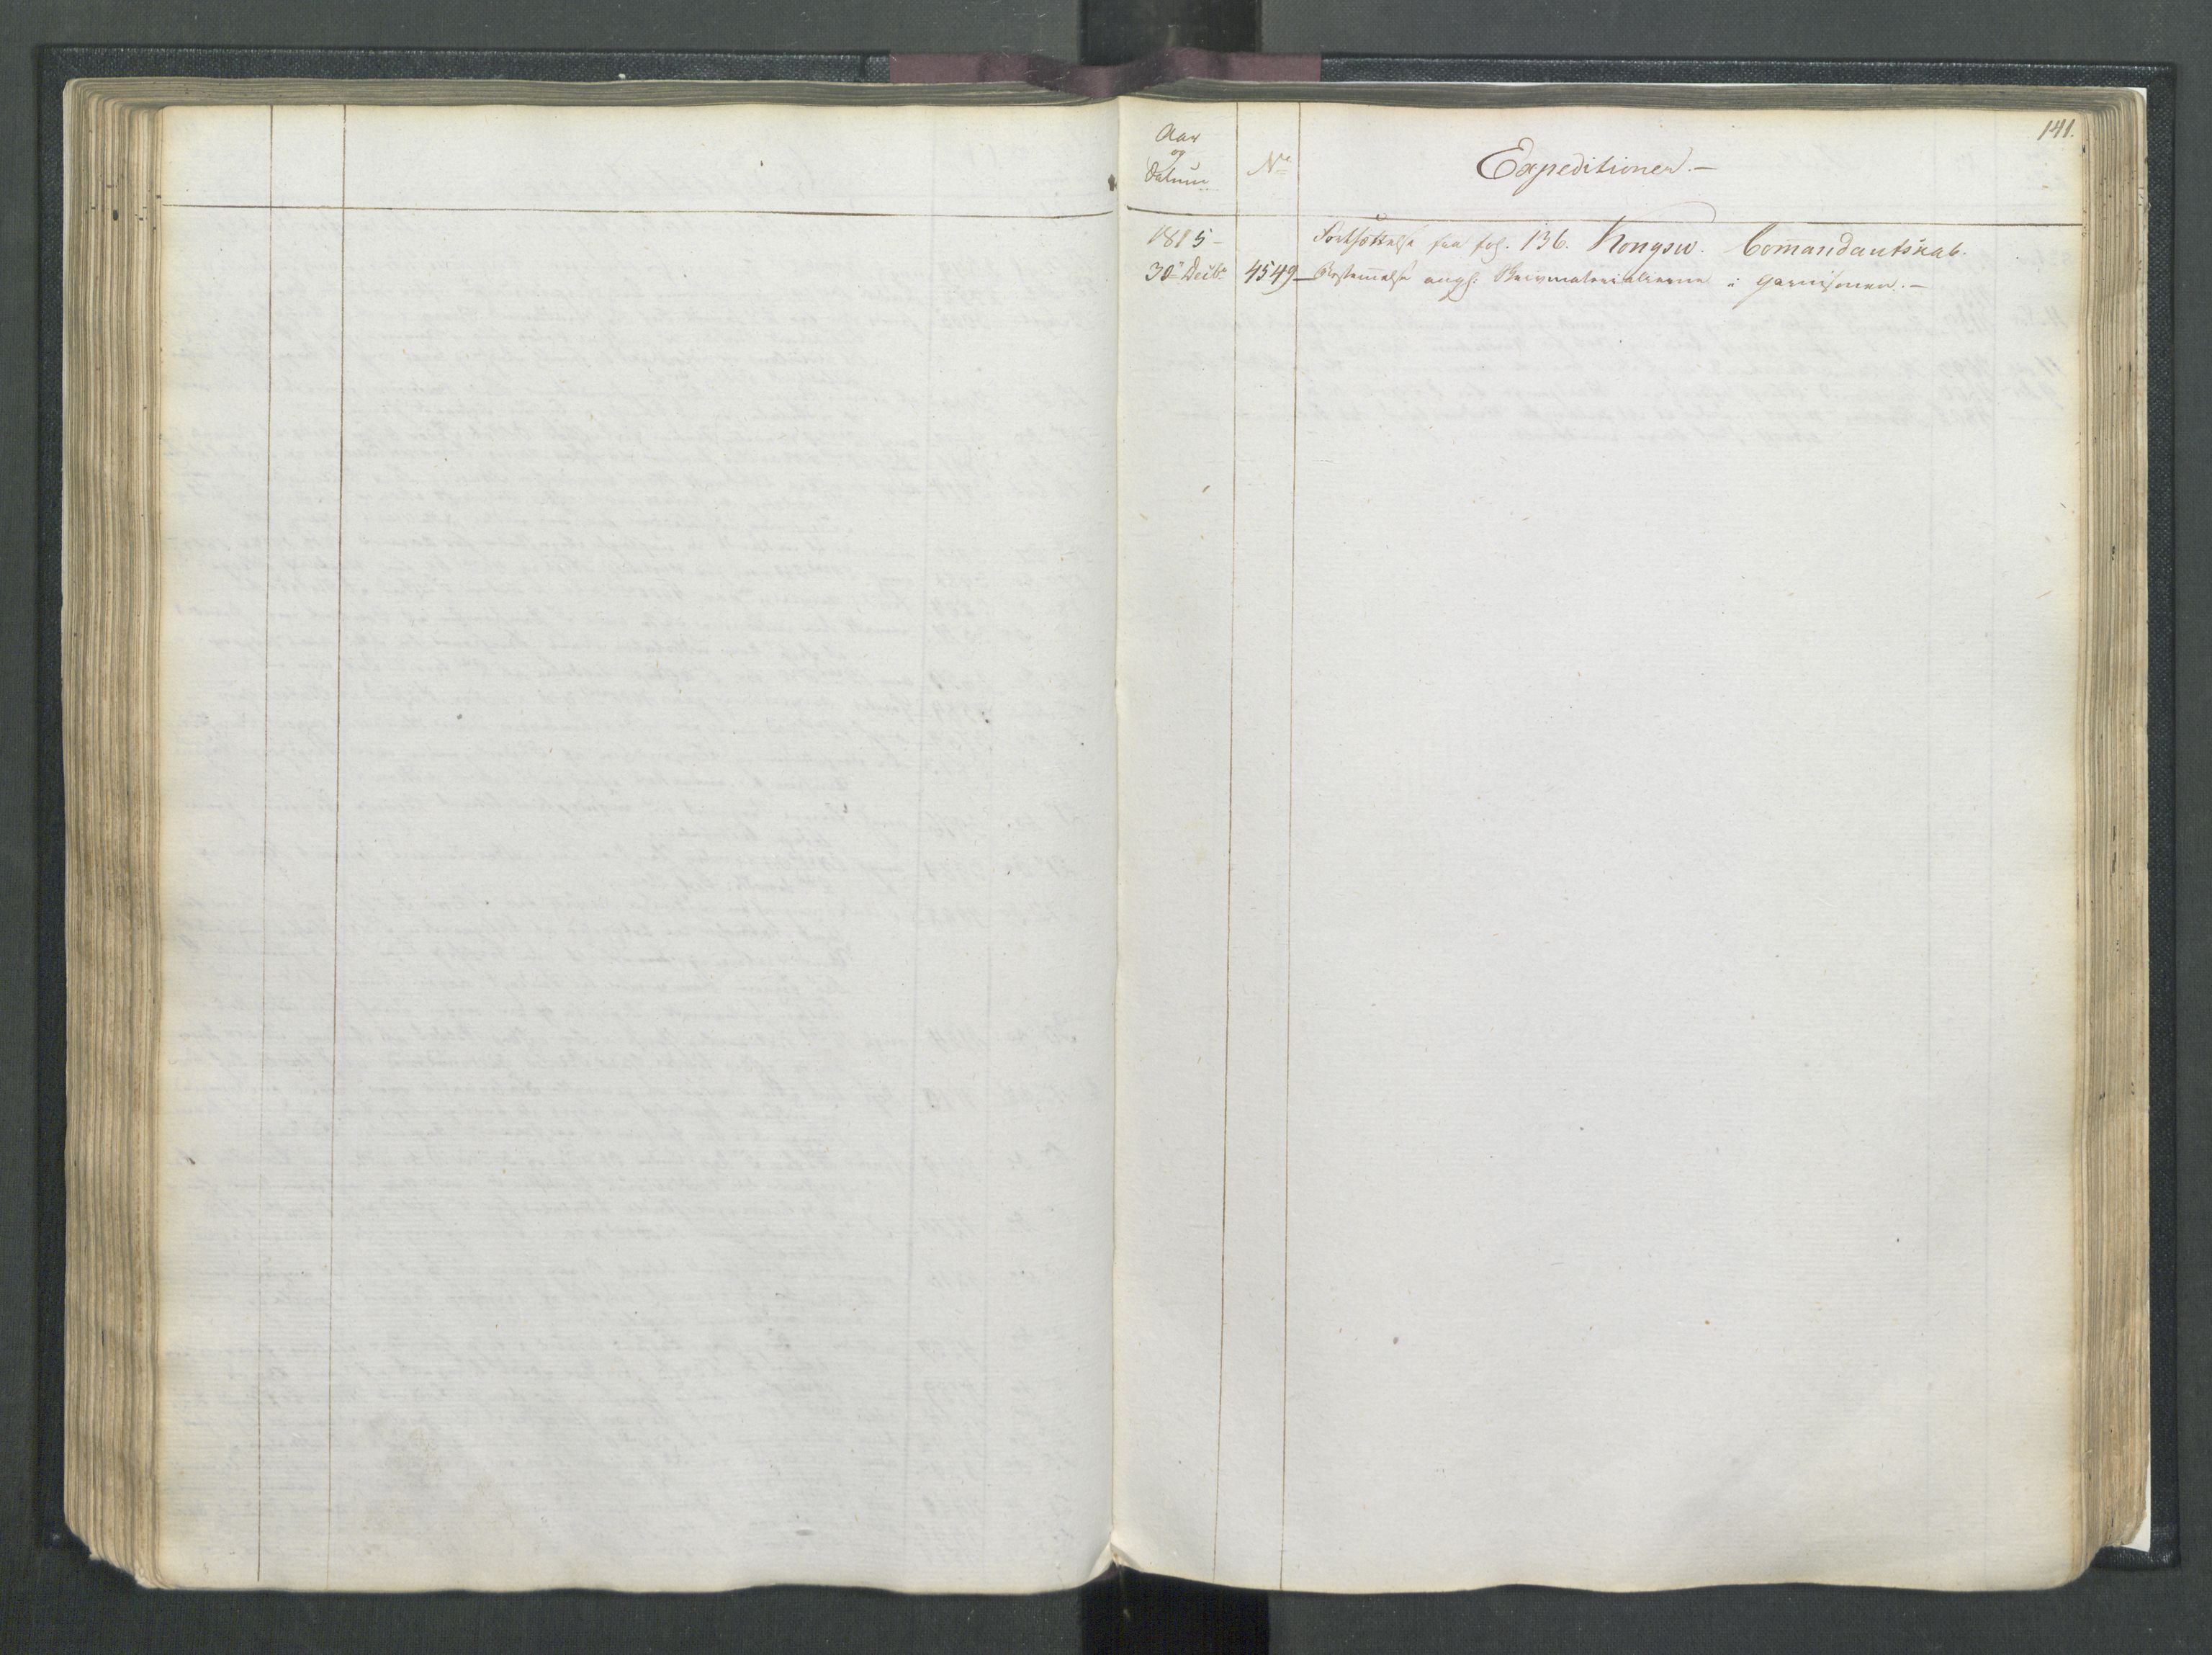 141.
Aar
og
Datum
No
Expeditioner.—
1815-
Fortsættelse fra fol. 136. Kongsw. Comandantskab.
30te Decbr 4549 Bestemelse angl: Skrivmaterialierne i Garnisonen.—